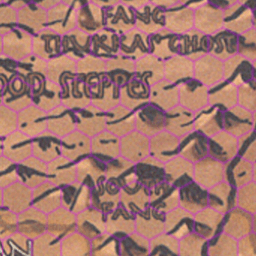 FANG
THUKKAS' GHOST
OOD STEPPES
SOUTH
FANG
AN